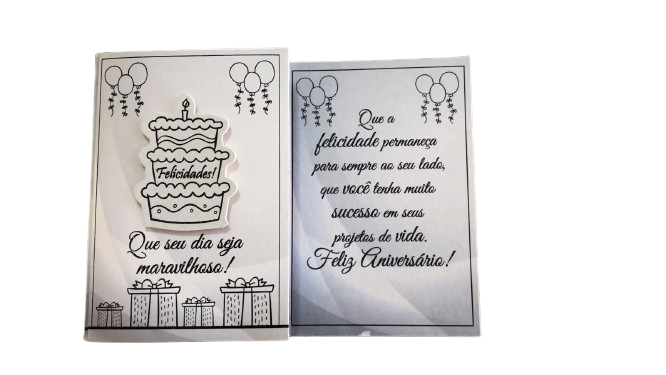 Felicidades!
Que seu dia seja
maravilhoso!
Que a
felicidade permaneça
para sempre ao seu lado,
que você tenha muito
sucesso em seus
projetos de vida.
Feliz Aniversário!